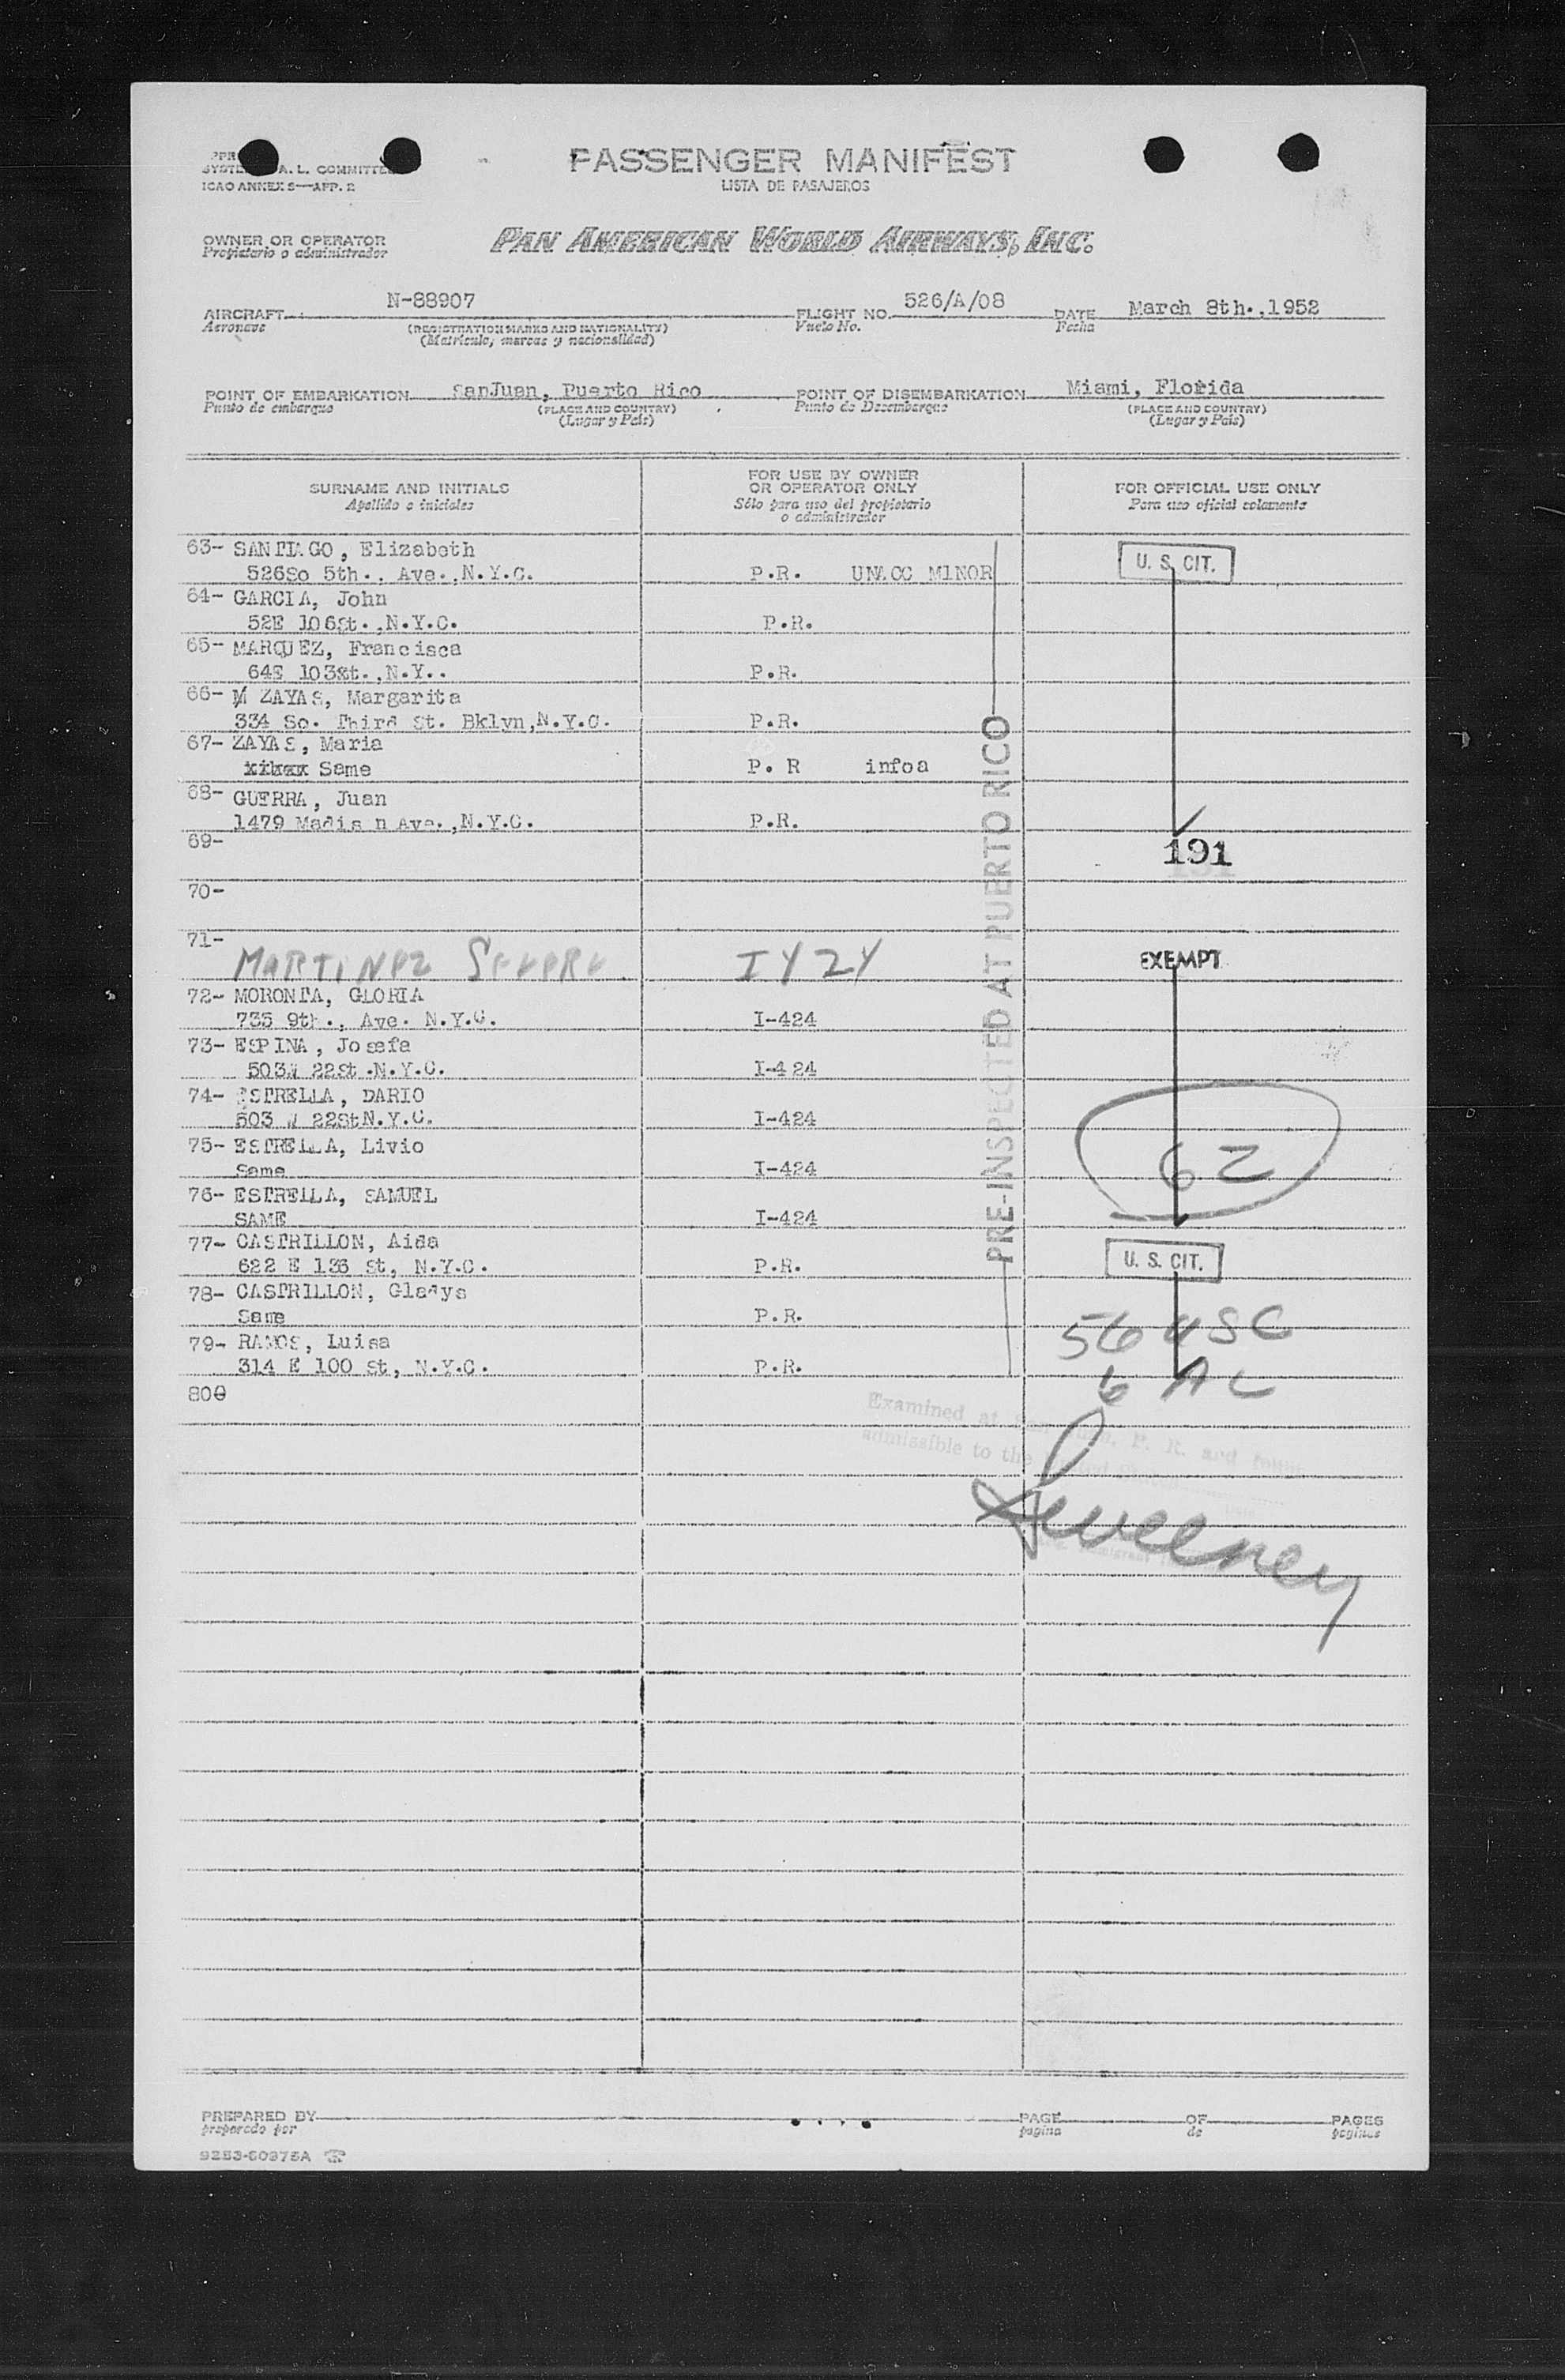 PASSENGER MANIFEST
A. L. COMMITTEE
LISTA DE PASAJEROS
ICAO ANNEX 9—APP. 2
OWNER OR OPERATOR
Propietario o administrador
PAN AMERICAN WORLD AIRWAYS, INC.
AIRCRAFT N-88907 FLIGHT NO. 526/A/08 DATE March 8th.,1952
Aeronave (REGISTRATION MARKS AND NATIONALITY) Vuelo No. Fecha
(Matricula, marcas y nacionalidad)
POINT OF EMBARKATION SanJuan, Puerto Rico POINT OF DISEMBARKATION Miami, Florida
Punto de embarque (PLACE AND COUNTRY) Punto de Desembarque (PLACE AND COUNTRY)
(Lugar y Pais) (Lugar y Pais)
SURNAME AND INITIALS
Apellido e iniciales
FOR USE BY OWNER
OR OPERATOR ONLY
Sólo para uso del propietario
o administrador
FOR OFFICIAL USE ONLY
Para uso oficial solamente
63- SANTIAGO, Elizabeth
526So 5th., Ave.,N.Y.C. P.R. UNACC MINOR U. S. CIT.
64- GARCIA, John
52E 106St.,N.Y.C. P.R.
65- MARQUEZ, Francisca
64E 103St.,N.Y.. P.R.
66- M ZAYAS, Margarita
334 So. Third St. Bklyn,N.Y.C. P.R.
67- ZAYAS, Maria
Same P. R infoa
68- GUERRA, Juan
1479 Madis n Ave.,N.Y.C. P.R.
69-
191
70-
71-
MARTINEZ I424 EXEMPT
72- MORONTA, GLORIA
735 9th., Ave. N.Y.C. I-424
73- ESPINA, Josefa
503W 22St.N.Y.C. I-424
74- ESTRELLA, DARIO
503 W 22StN.Y.C. I-424
75- ESTRELLA, Livio
Same I-424
62
76- ESTRELLA, SAMUEL
SAME I-424
77- CASTRILLON, Aida
622 E 136 St, N.Y.C. P.R. U. S. CIT.
78- CASTRILLON, Gladys
Same P.R.
56 USC
79- RAMOS, Luisa
314 E 100 St, N.Y.C. P.R.
6 AL
800
PRE-INSPECTED AT PUERTO RICO
Examined at San Juan, P. R. and found
admissible to the United States
Sweeney
PREPARED BY PAGE OF PAGES
preparado por pagina de paginas
9253-60975A